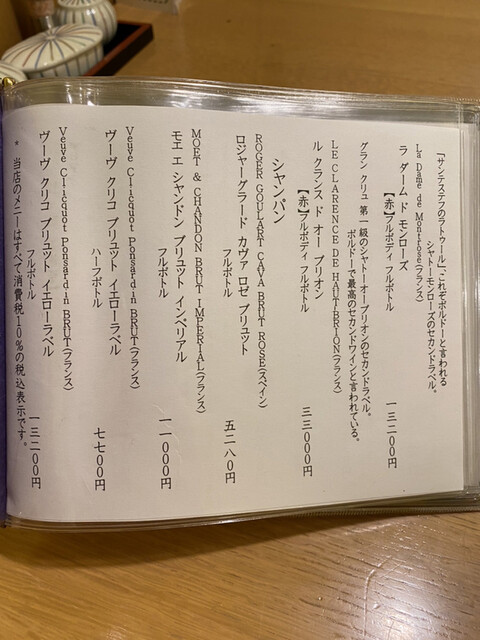 「サンテステフのラトゥール」、これぞボルドーと言われる
シャトーモンローズのセカンドラベル。
La Dame de Montrose(フランス)
ラ ダーム ド モンローズ
【赤】フルボディ フルボトル 一三二〇〇円
グラン クリュ 第一級のシャトーオーブリオンのセカンドラベル。
ボルドーで最高のセカンドワインと言われている。
LE CLARENCE DE HAUT BRION(フランス)
ル クランス ド オー ブリオン
【赤】フルボディ フルボトル 三三〇〇〇円
シャンパン
ROGER GOULART CAVA BRUT ROSE(スペイン)
ロジャーグラード カヴァ ロゼ ブリュット
フルボトル 五二八〇円
MOET & CHANDON BRUT IMPERIAL(フランス)
モエ エ シャンドン ブリュット インペリアル
フルボトル 一一〇〇〇円
Veuve Clicquot Ponsardin BRUT(フランス)
ヴーヴ クリコ ブリュット イエローラベル
ハーフボトル 七七〇〇円
Veuve Clicquot Ponsardin BRUT(フランス)
ヴーヴ クリコ ブリュット イエローラベル
フルボトル 一三二〇〇円
* 当店のメニューはすべて消費税10%の税込表示です。